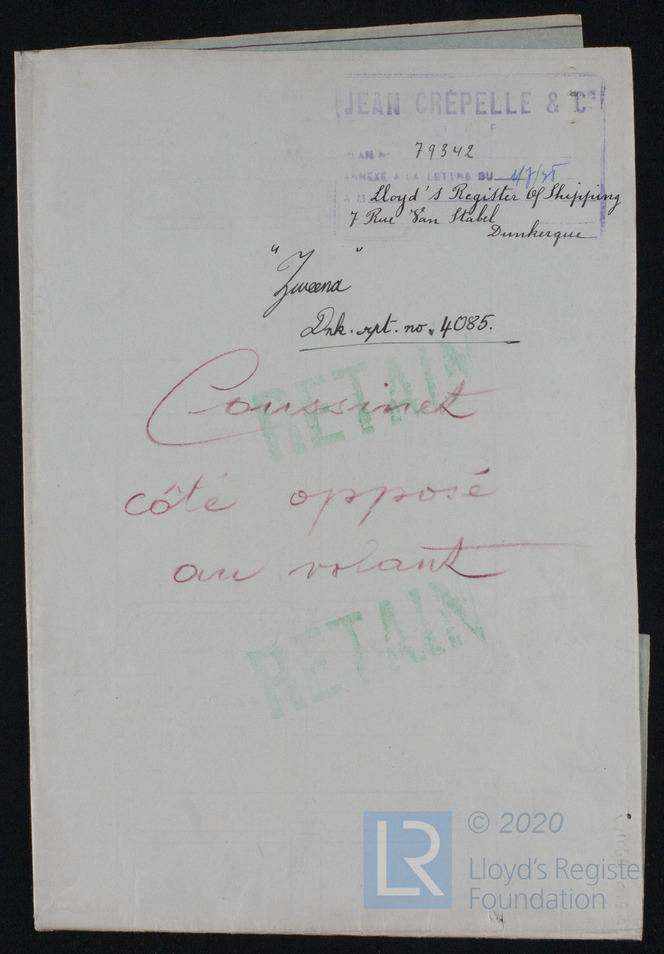 JEAN CRÉPELLE & Cie
PLAN No 79342
ANNEXÉ A LA LETTRE DU
Lloyd's Register Of Shipping
7 Rue Van Stabel
Dunkerque
"Zweena"
Dnk. rpt. no. 4085.
RETAIN
Coussinet
côté opposé
au volant
RETAIN
LR
© 2020
Lloyd's Registe
Foundation